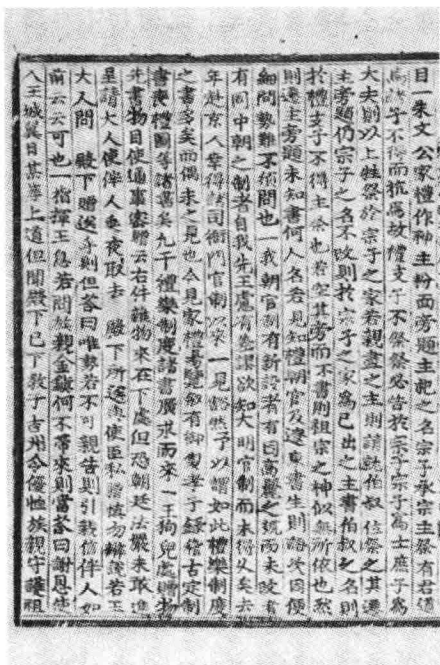 目一朱文公家禮作神主粉面旁題主祀之名宗子承宗主祭有君道
焉諸子不得而抗焉故禮支子不祭祭必告於宗子宗子爲士庶子爲
大夫則以上牲祭於宗子之家若親盡之主則請就伯叔位祭之其遷
主旁題仍宗子之名不改則於宗子之家爲已出之主書伯叔之名則
於禮支子不得主祭也若空其旁而不書則祖宗之神似無所依也然
則遷主旁題未知書何人名若見知禮朝官及遼東書生則語次因便
細問勢難不須問也一我朝官制有新設者有因高麗之舊而未改者
有同中朝之制者自我先王慮有僭謬欲知大明官制而未得久矣去
年赴京人幸得諸司衙門官制以來一見豁然予以謂如此禮樂制度
之書容或偶未之見也今見家禮易覽敏有御製孝子錄稽古定制
書喪禮圖等諸書凡干禮樂制度諸書廣求而來一王狗兒處贈物
先書物目使通事密贈云右件雜物來在下處但恐朝廷法嚴未敢進
呈請大人使伴人乘夜取去 殿下所送專使臣私贈慎勿辭說若王
大人問 殿下贈送乎則但答曰唯勢若不可親告則引親信伴人如
前云云可也一指揮王息若問族親金鐵何不帶來則當答曰謝恩使
入王城翼日其等上道但聞殿下已下敎于吉州令優恤族親守護祖